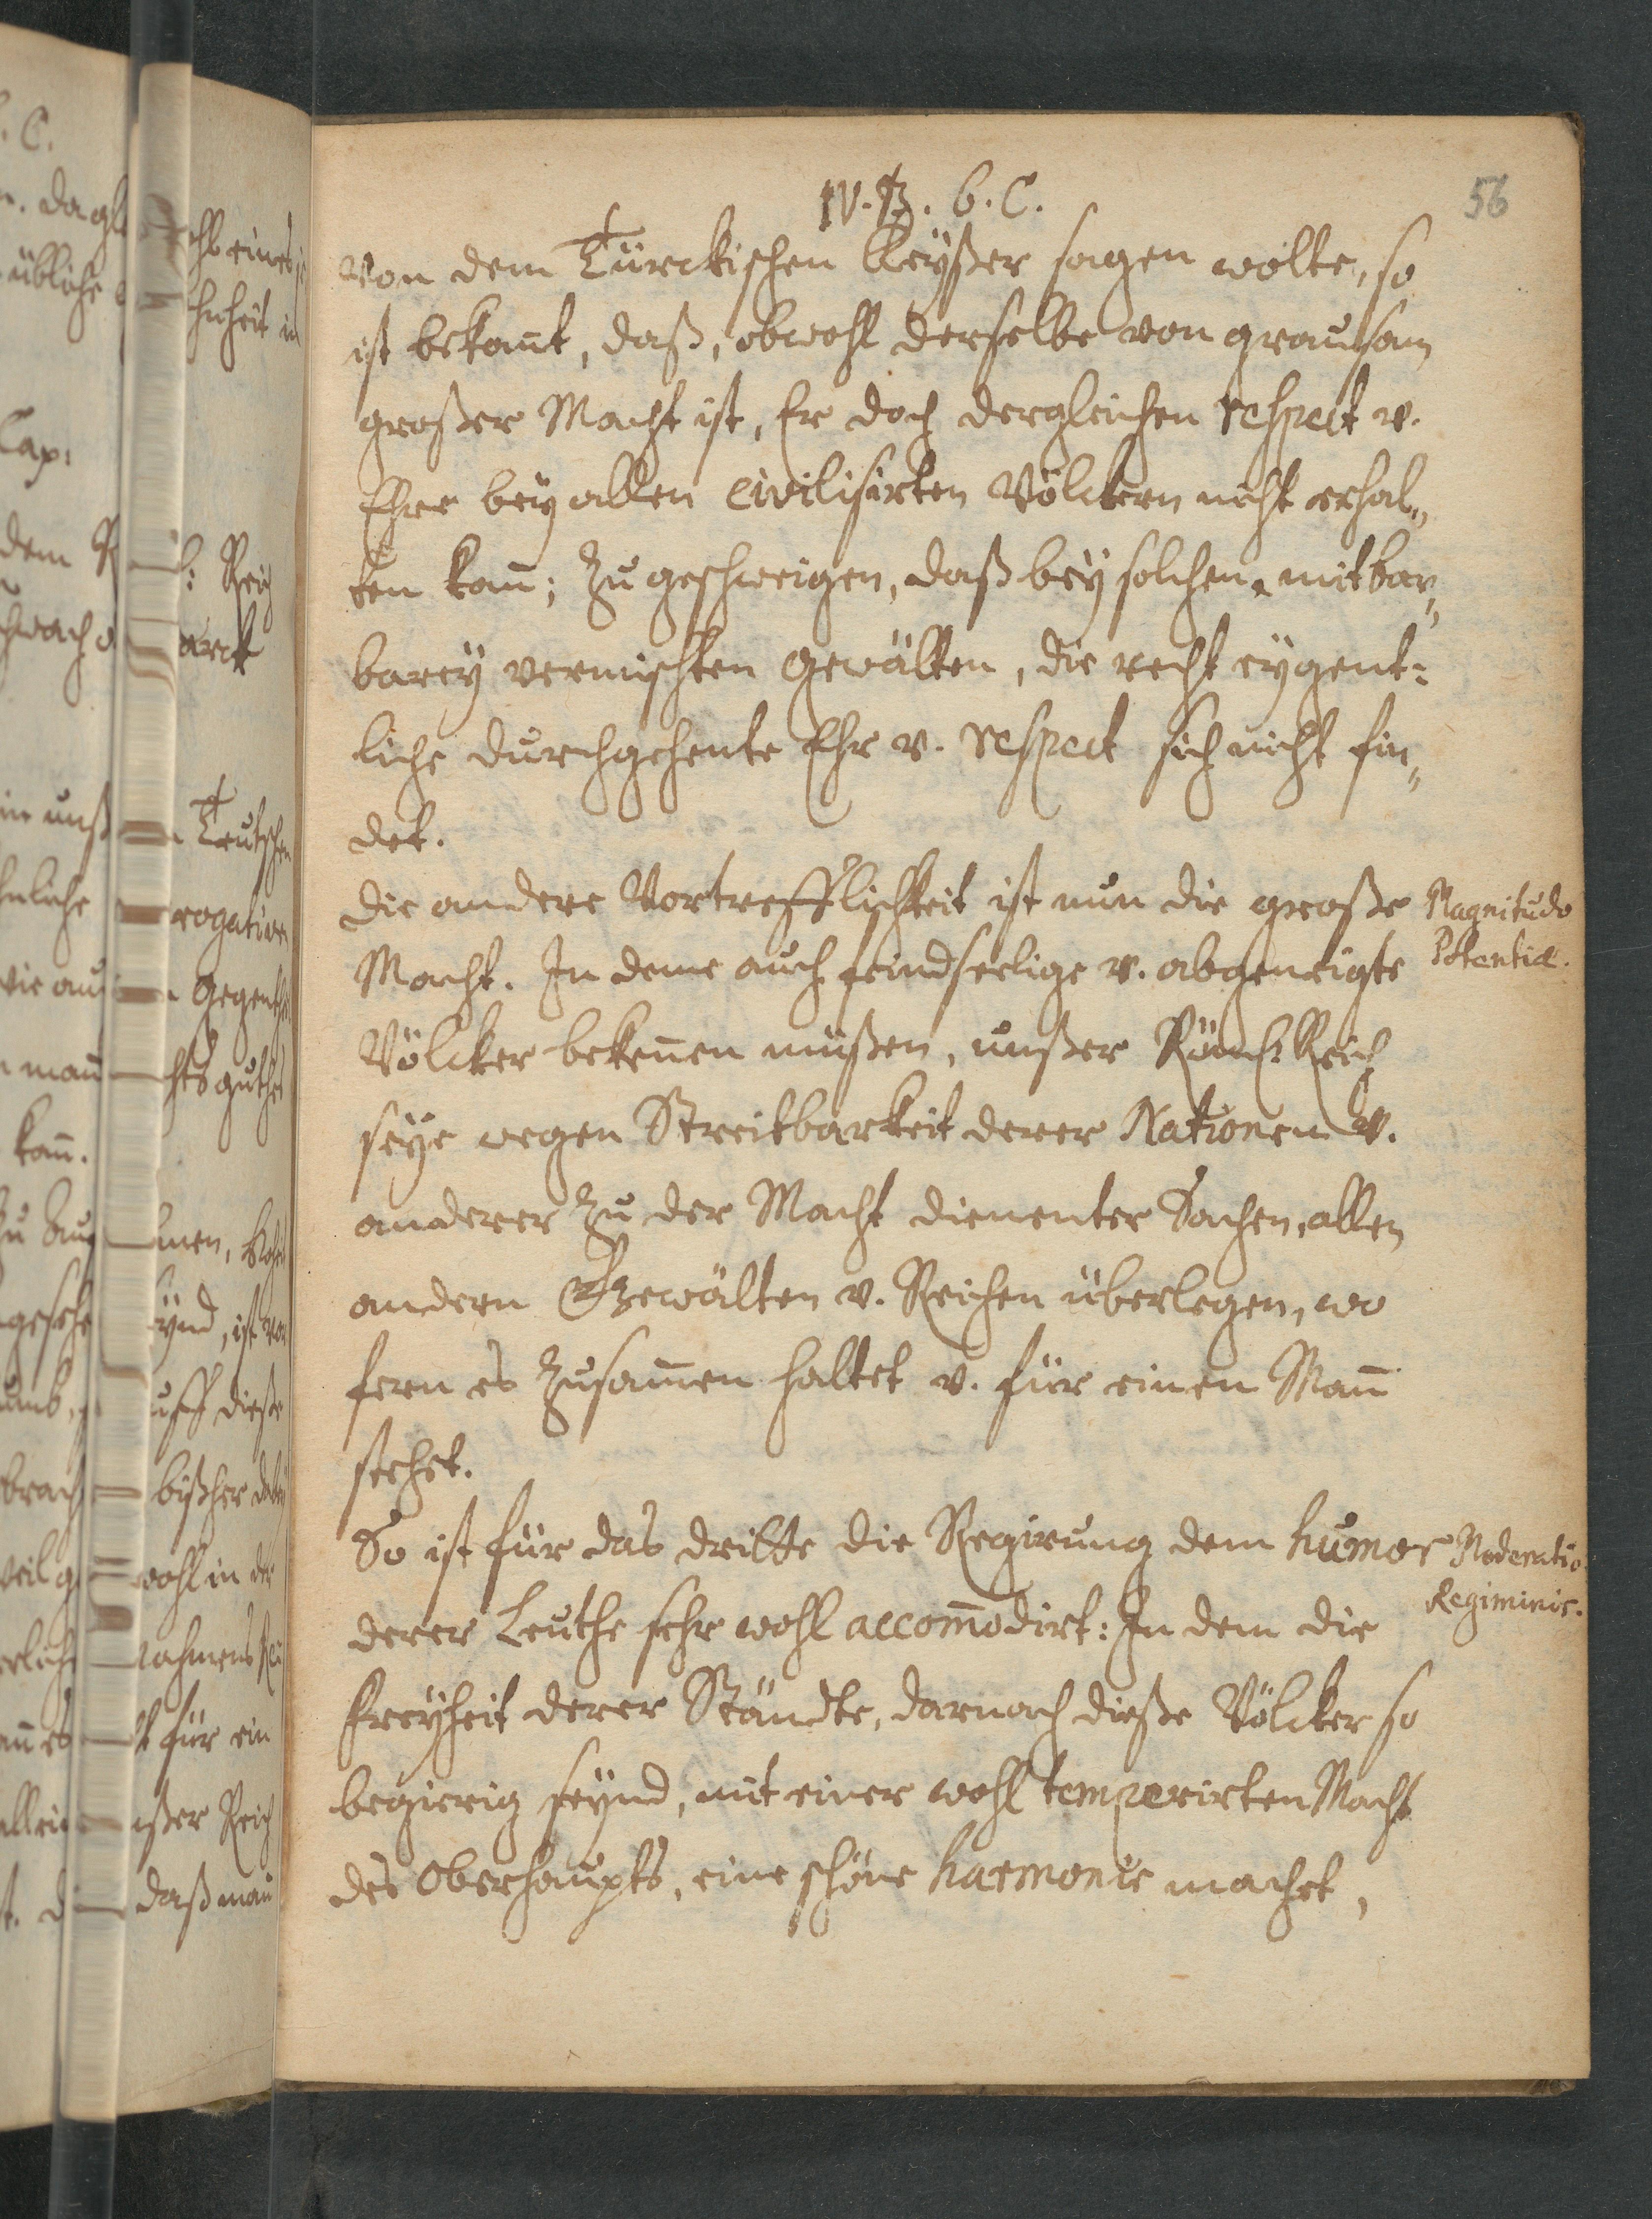 IV. B. 6. C.
56
von dem Türckischen Keyßer sagen wolte, so
ist bekant, daß, obwohl derselbe von grausam
großer Macht ist, Er doch dergleichen respect v.
Ehre bey allen civilisirten Völckern nicht erhal„
ten kan; zu geschweigen, daß bey solchen, mit bar„
barey vermischten Gewälten, die recht eygent:
liche durchgehente Ehr v. respect sich nicht fin„
det.
Die andere Vortrefflichkeit ist nun die große
Magnitudo
Potentiæ.
Macht. In deme auch feindseelige v. abgeneigte
Völcker bekennen müßen, unßer Röm: Reich
seye wegen Streitbarkeit derer Nationen v.
anderer zu der Macht dienenter Sachen, allen
andern Gewälten v. Reichen überlegen, wo
fern es zusamen haltet v. für einen Man
stehet.
So ist für das dritte die Regirung dem humor
Moderatio
Regiminis.
derer Leuthe sehr wohl accomodirt: In dem die
Freyheit derer Ständte, darnach dieße Völcker so
begierig seynd, mit einer wohl temperirten Macht
des Oberhaupts, eine schöne harmonie machet,